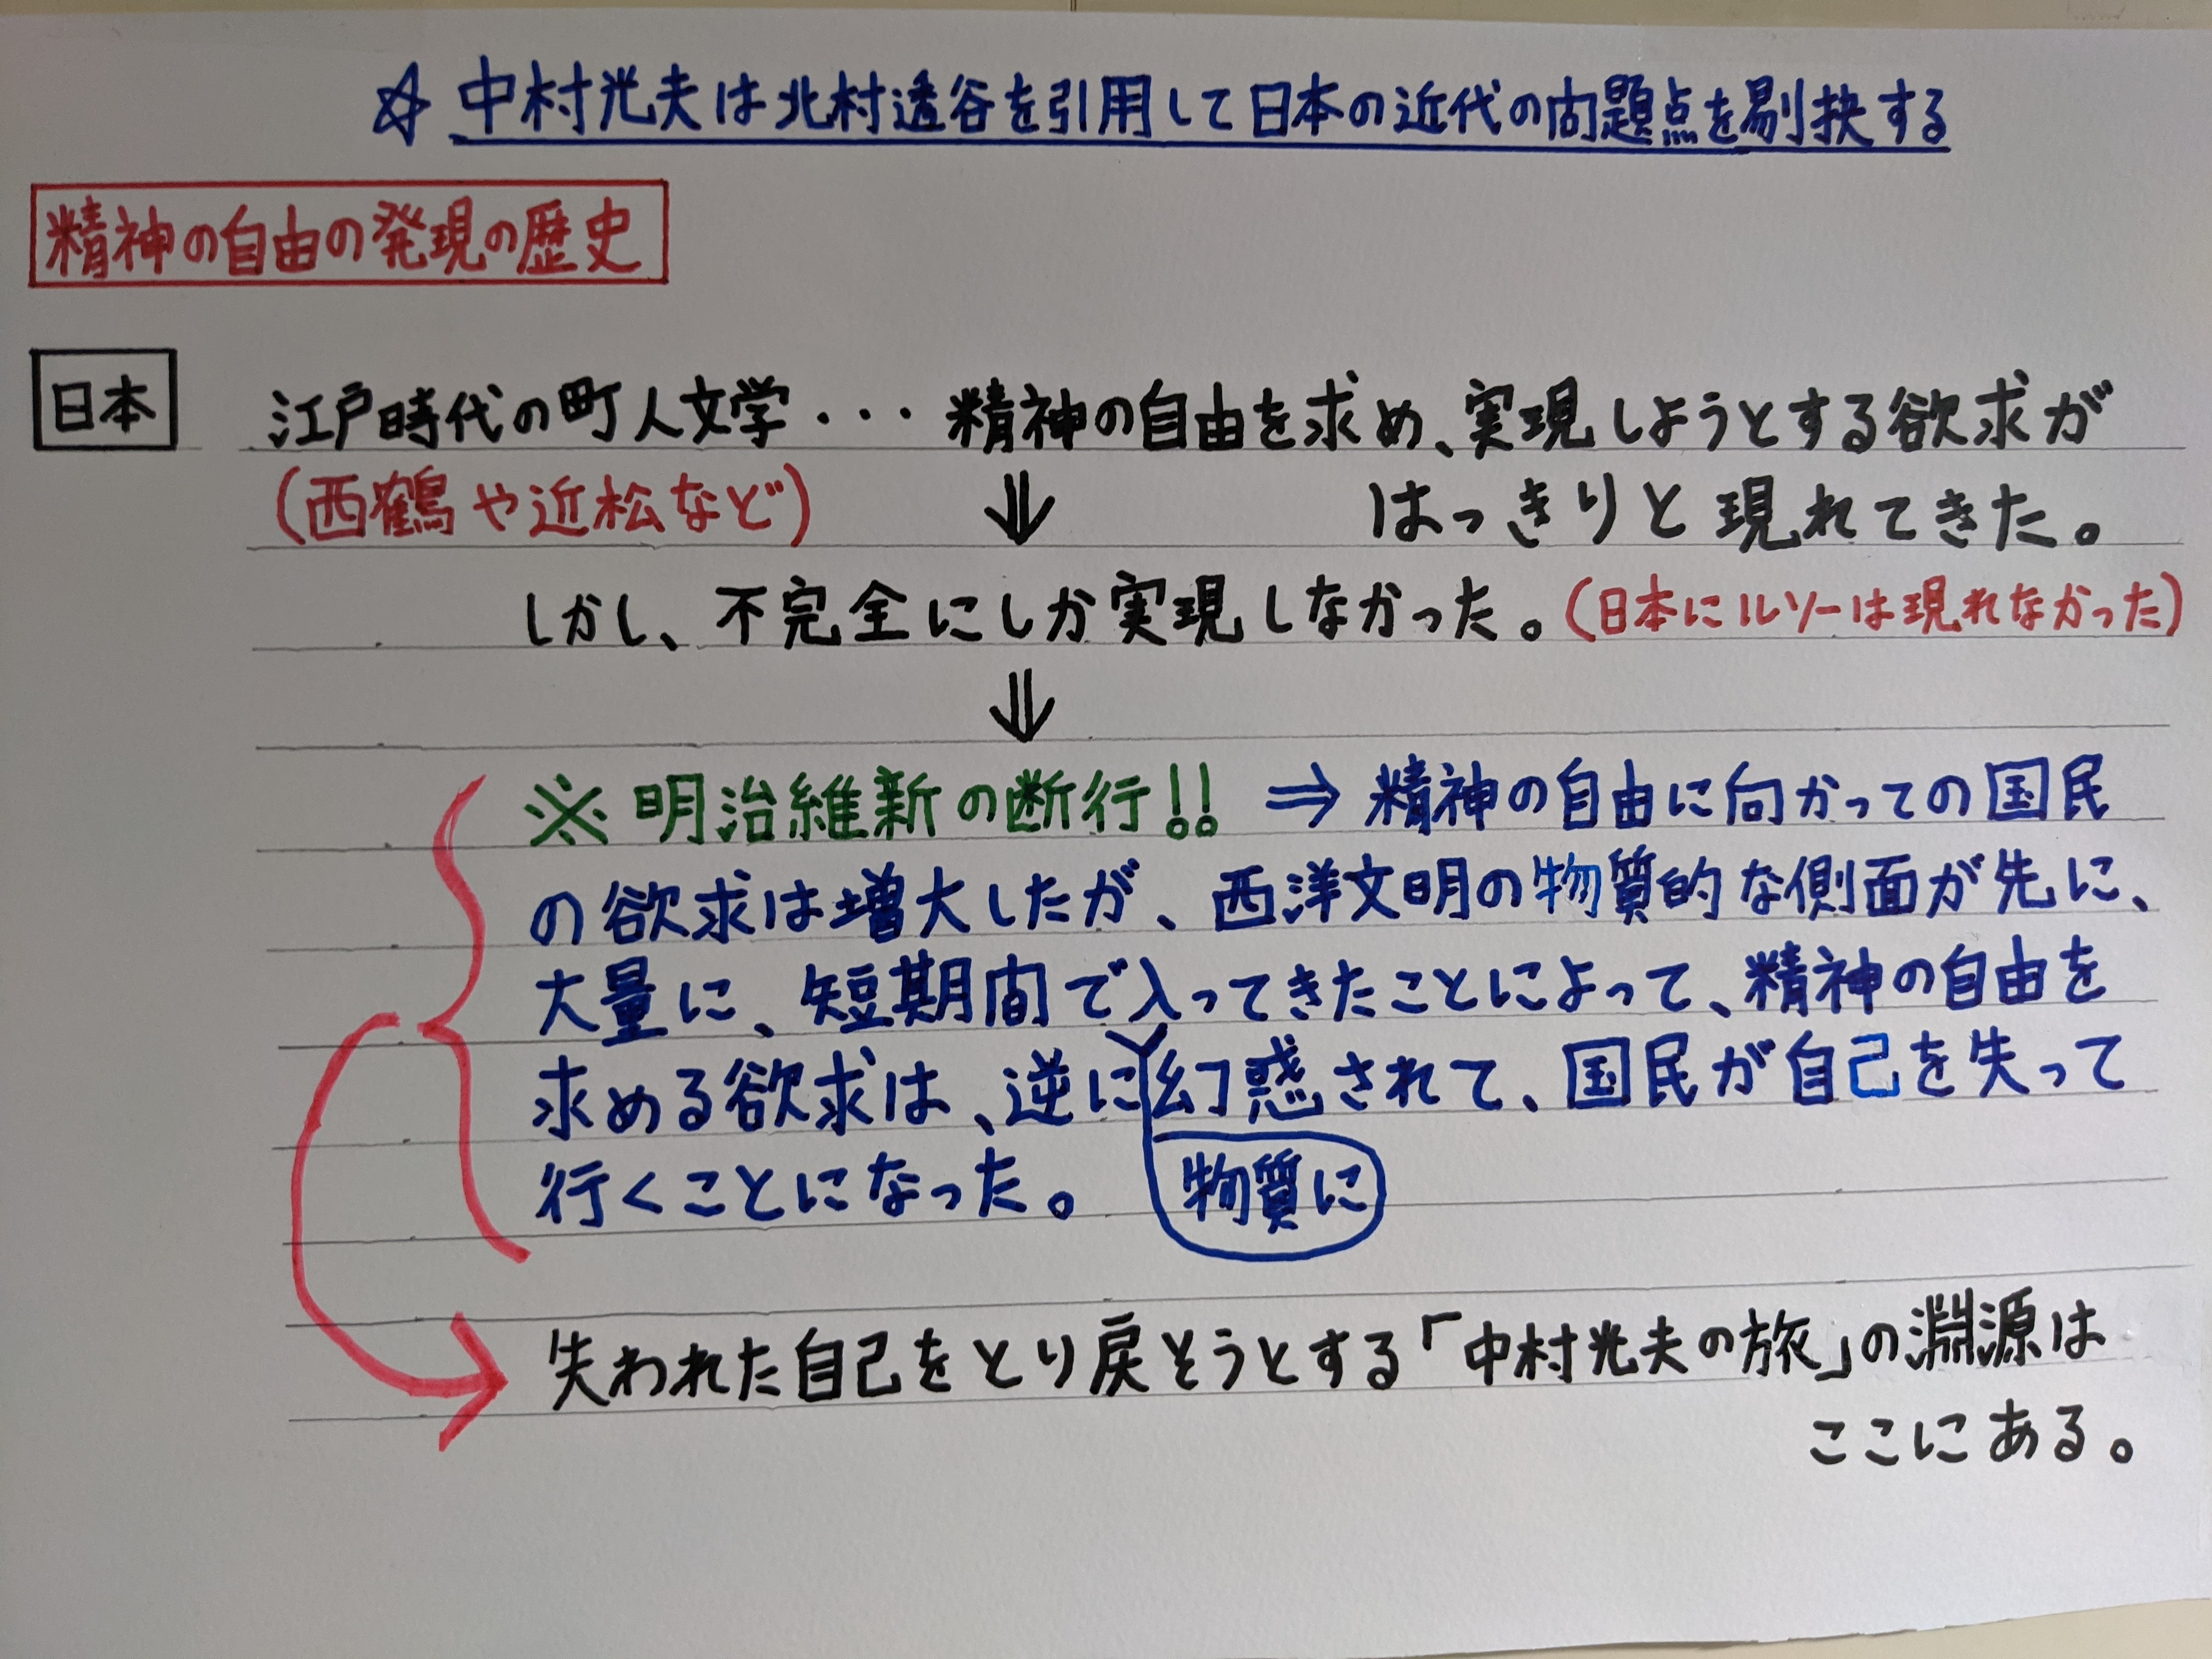 ☆ 中村光夫は北村透谷を引用して日本の近代の問題点を剔抉する
精神の自由の発現の歴史
日本
江戸時代の町人文学・・・精神の自由を求め、実現しようとする欲求が
(西鶴や近松など) ⇓ はっきりと現れてきた。
しかし、不完全にしか実現しなかった。(日本にルソーは現れなかった)
⇓
※明治維新の断行!! ⇒ 精神の自由に向かっての国民
の欲求は増大したが、西洋文明の物質的な側面が先に、
大量に、短期間で入ってきたことによって、精神の自由を
求める欲求は、逆に幻惑されて、国民が自己を失って
行くことになった。 物質に
失われた自己をとり戻そうとする「中村光夫の旅」の淵源は
ここにある。